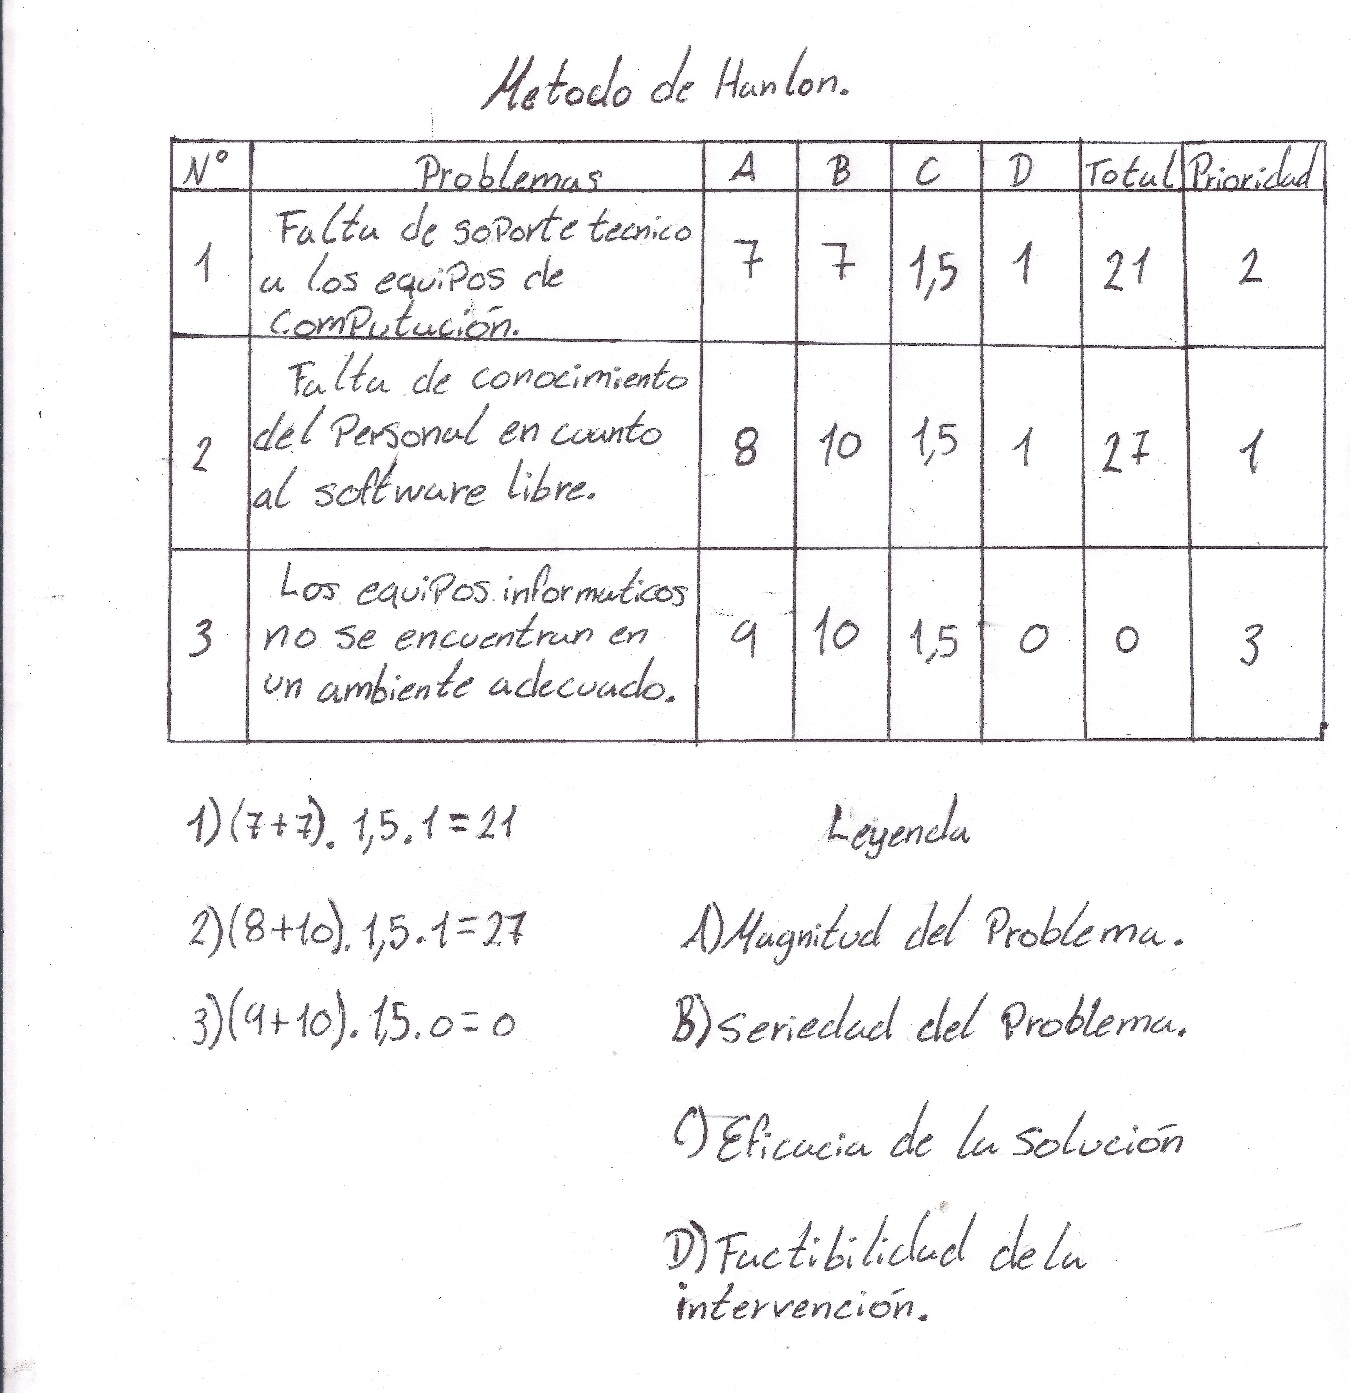 Metodo de Hanlon.
Nº Problemas A B C D Total Prioridad
1 Falta de soporte tecnico a los equipos de computación. 7 7 1,5 1 21 2
2 Falta de conocimiento del Personal en cuanto al software libre. 8 10 1,5 1 27 1
3 Los equipos informaticos no se encuentran en un ambiente adecuado. 9 10 1,5 0 0 3
1) (7+7). 1,5.1=21
2) (8+10). 1,5.1=27
3) (9+10). 1,5.0=0
Leyenda
A) Magnitud del Problema.
B) Seriedad del Problema.
C) Eficacia de la Solución
D) Factibilidad de la
intervención.